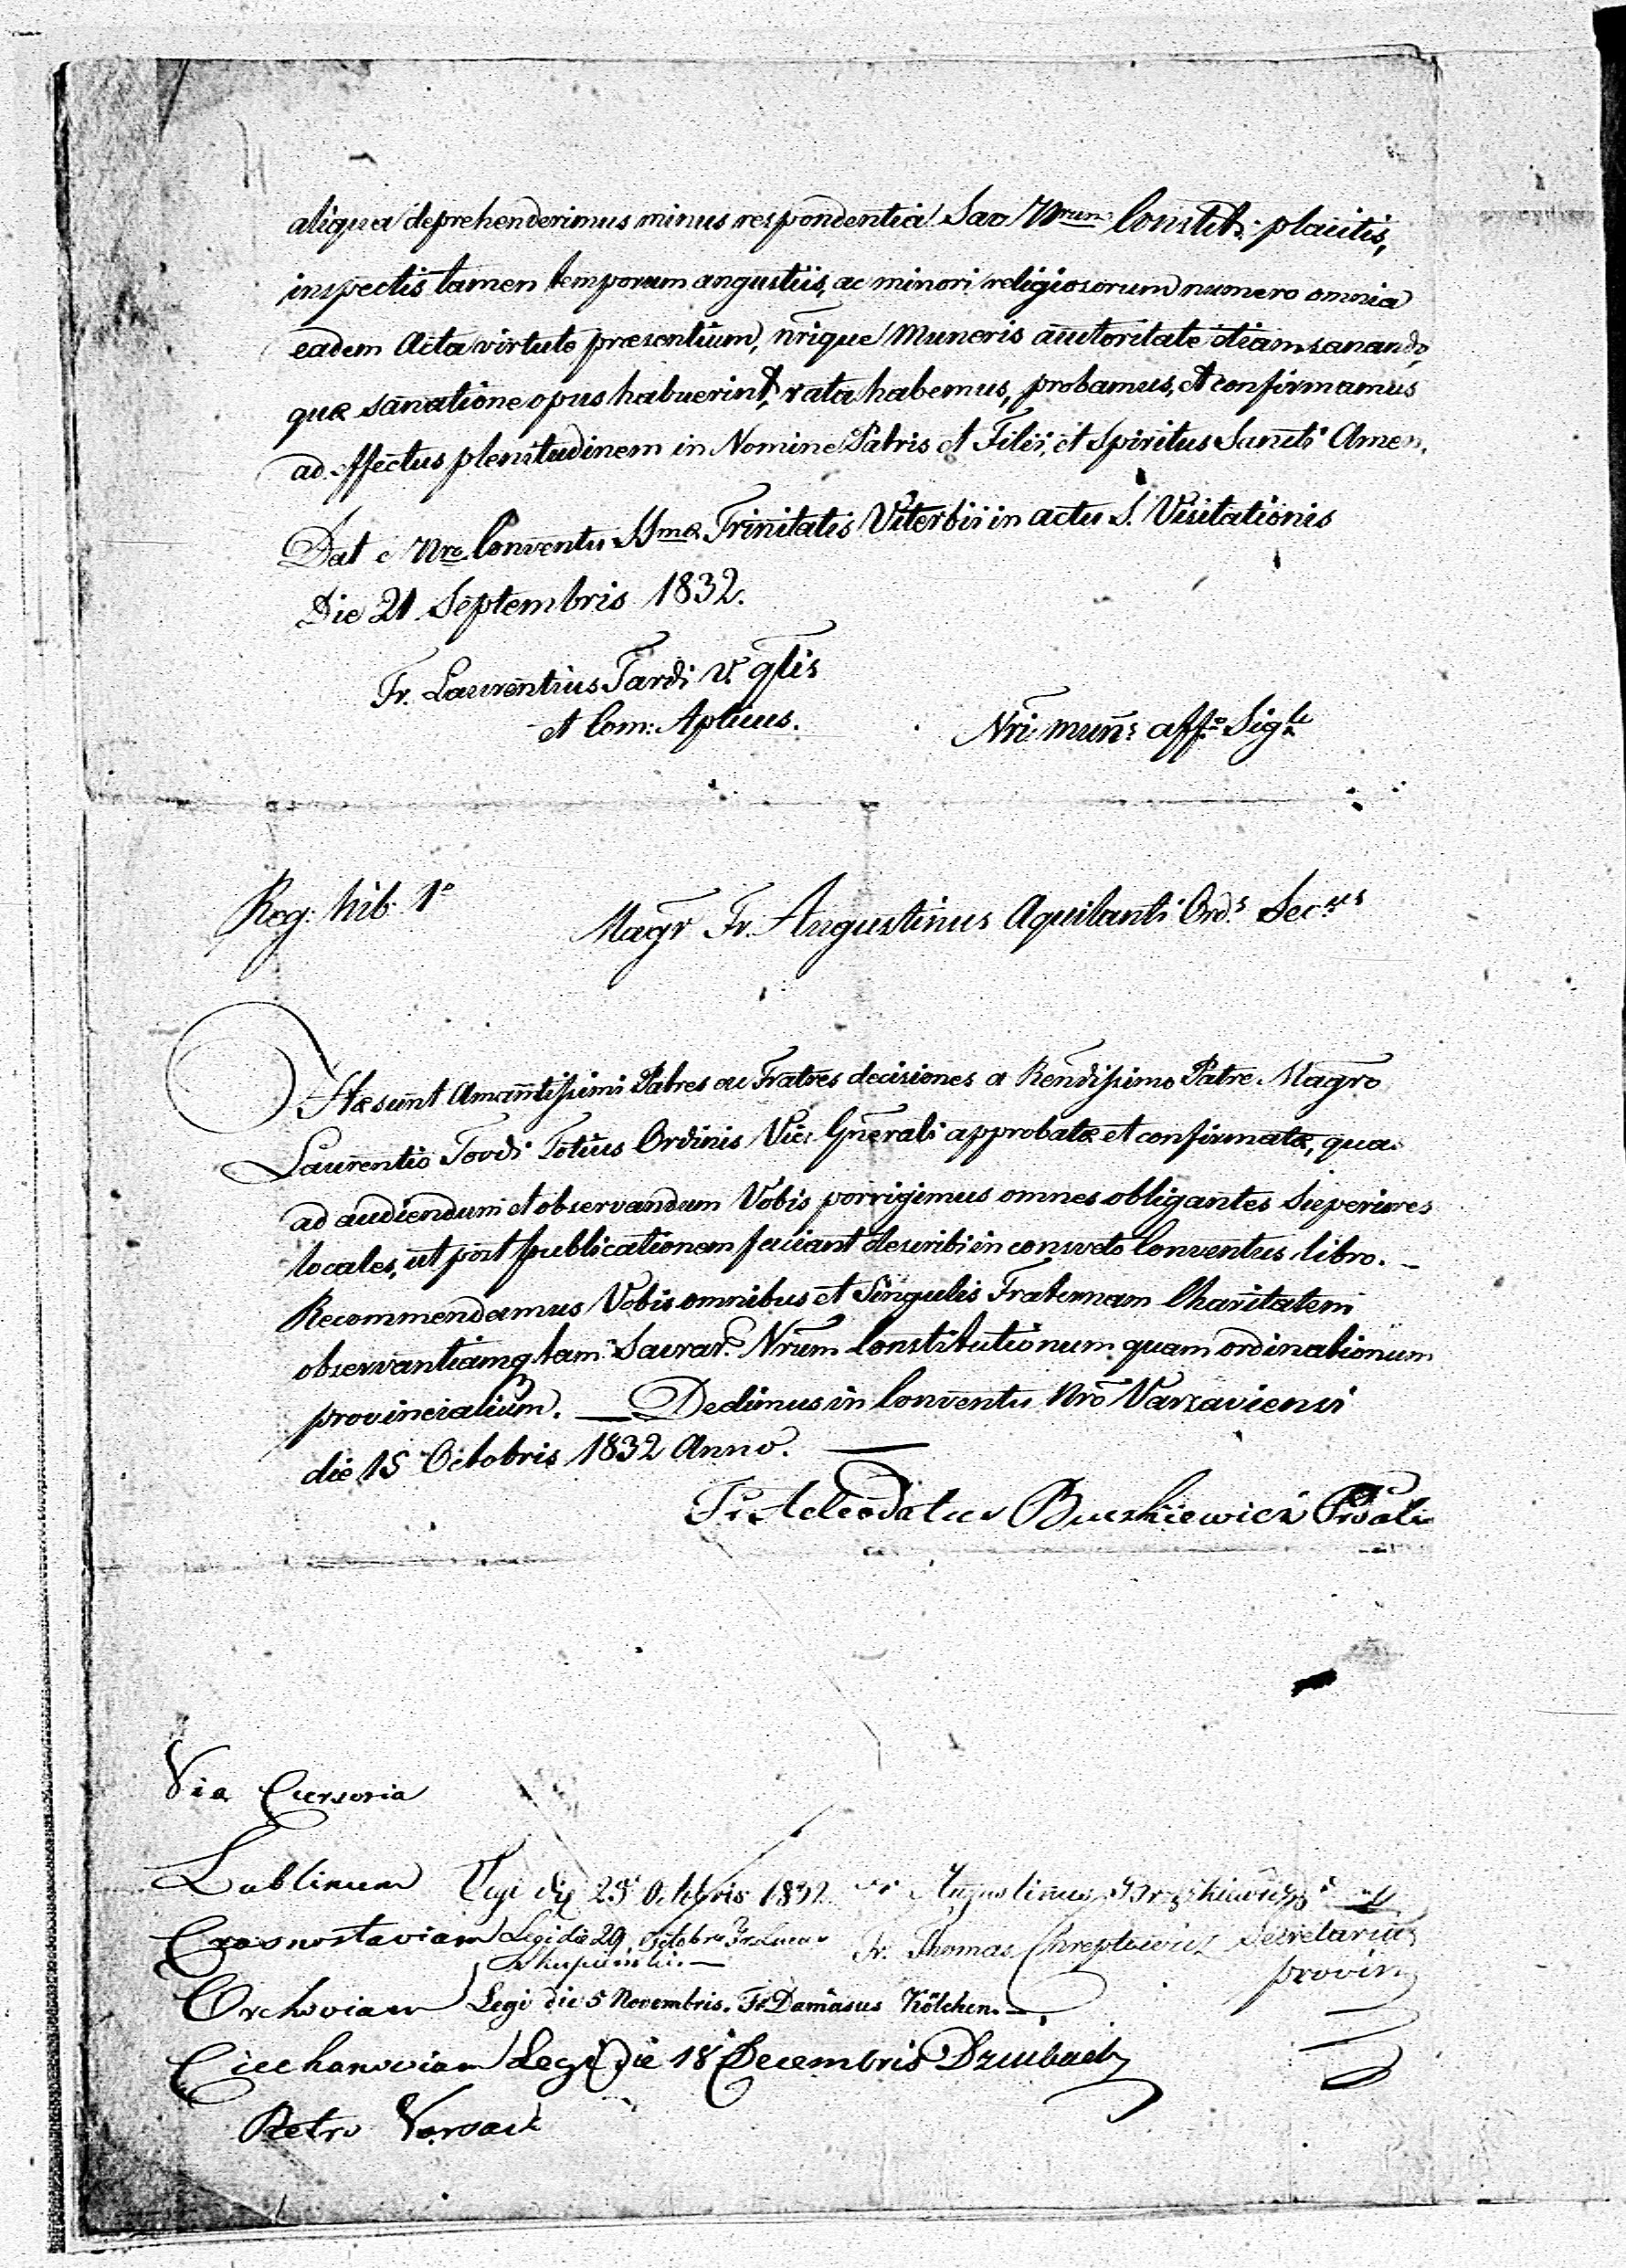 aliqua deprehenderimus minus respondentia Sac Nrum Constit: placitis,
inspectis tamen temporum angustiis, ac minori religiosorum numero omnia
eadem Acta virtute præsentium, nrique Muneris auutoritate etiam sanando,
quæ sanatione opus habuerint, rata habemus, probamus, et confirmamus
ad effectus plenitudinem in Nomine Patris et Filii, et Spiritus Sancti Amen.
Dat e Nro Conventu SSmæ Trinitatis Viterbii in actu S. Visitationis
Die 21 Septembris 1832.
Fr. Laurentius Tardi V. Gflis
et Com: Aplicus.
Nri mun̄s aff° Sig
Reg: Lib. 1°
Magr Fr. Augustinus Aquilanti Ord.s Sec
Hæ sunt Amantissimi Patres ac Fratres decisiones a Rendissimo Patre Magro
Laurentio Tardi Totius Ordinis Vic: Gnerali approbatæ et confirmatæ, quas
ad audiendum et observandum Vobis porrigimus omnes obligantes Superiores
locales, ut post publicationem faciant describi in consveto Conventus libro. —
Recommendamus Vobis omnibus et Singulis Fraternam Charitatem
observantiamq tam Sacrar. Nrum Constitutionum quam ordinationum
provincialium. — Dedimus in Conventu Nro Varsaviensi
die 15 Octobris 1832 Anno. —
Fr. Adeodatus Buszkiewicz
Via Cursoria
Lublinum Legi die 25 Octobris 1832 Augustinus
Crasnostaviam Legi die 29 Octobr Fr. Lucas
Fr. Thomas Chreptowicz Secretarius
provin
Orchoviam Legi die 5 Novembris. Fr. Damasus Kölchen. —
Ciechanoviam Legi Die 18 Decembris
Retro Varsav